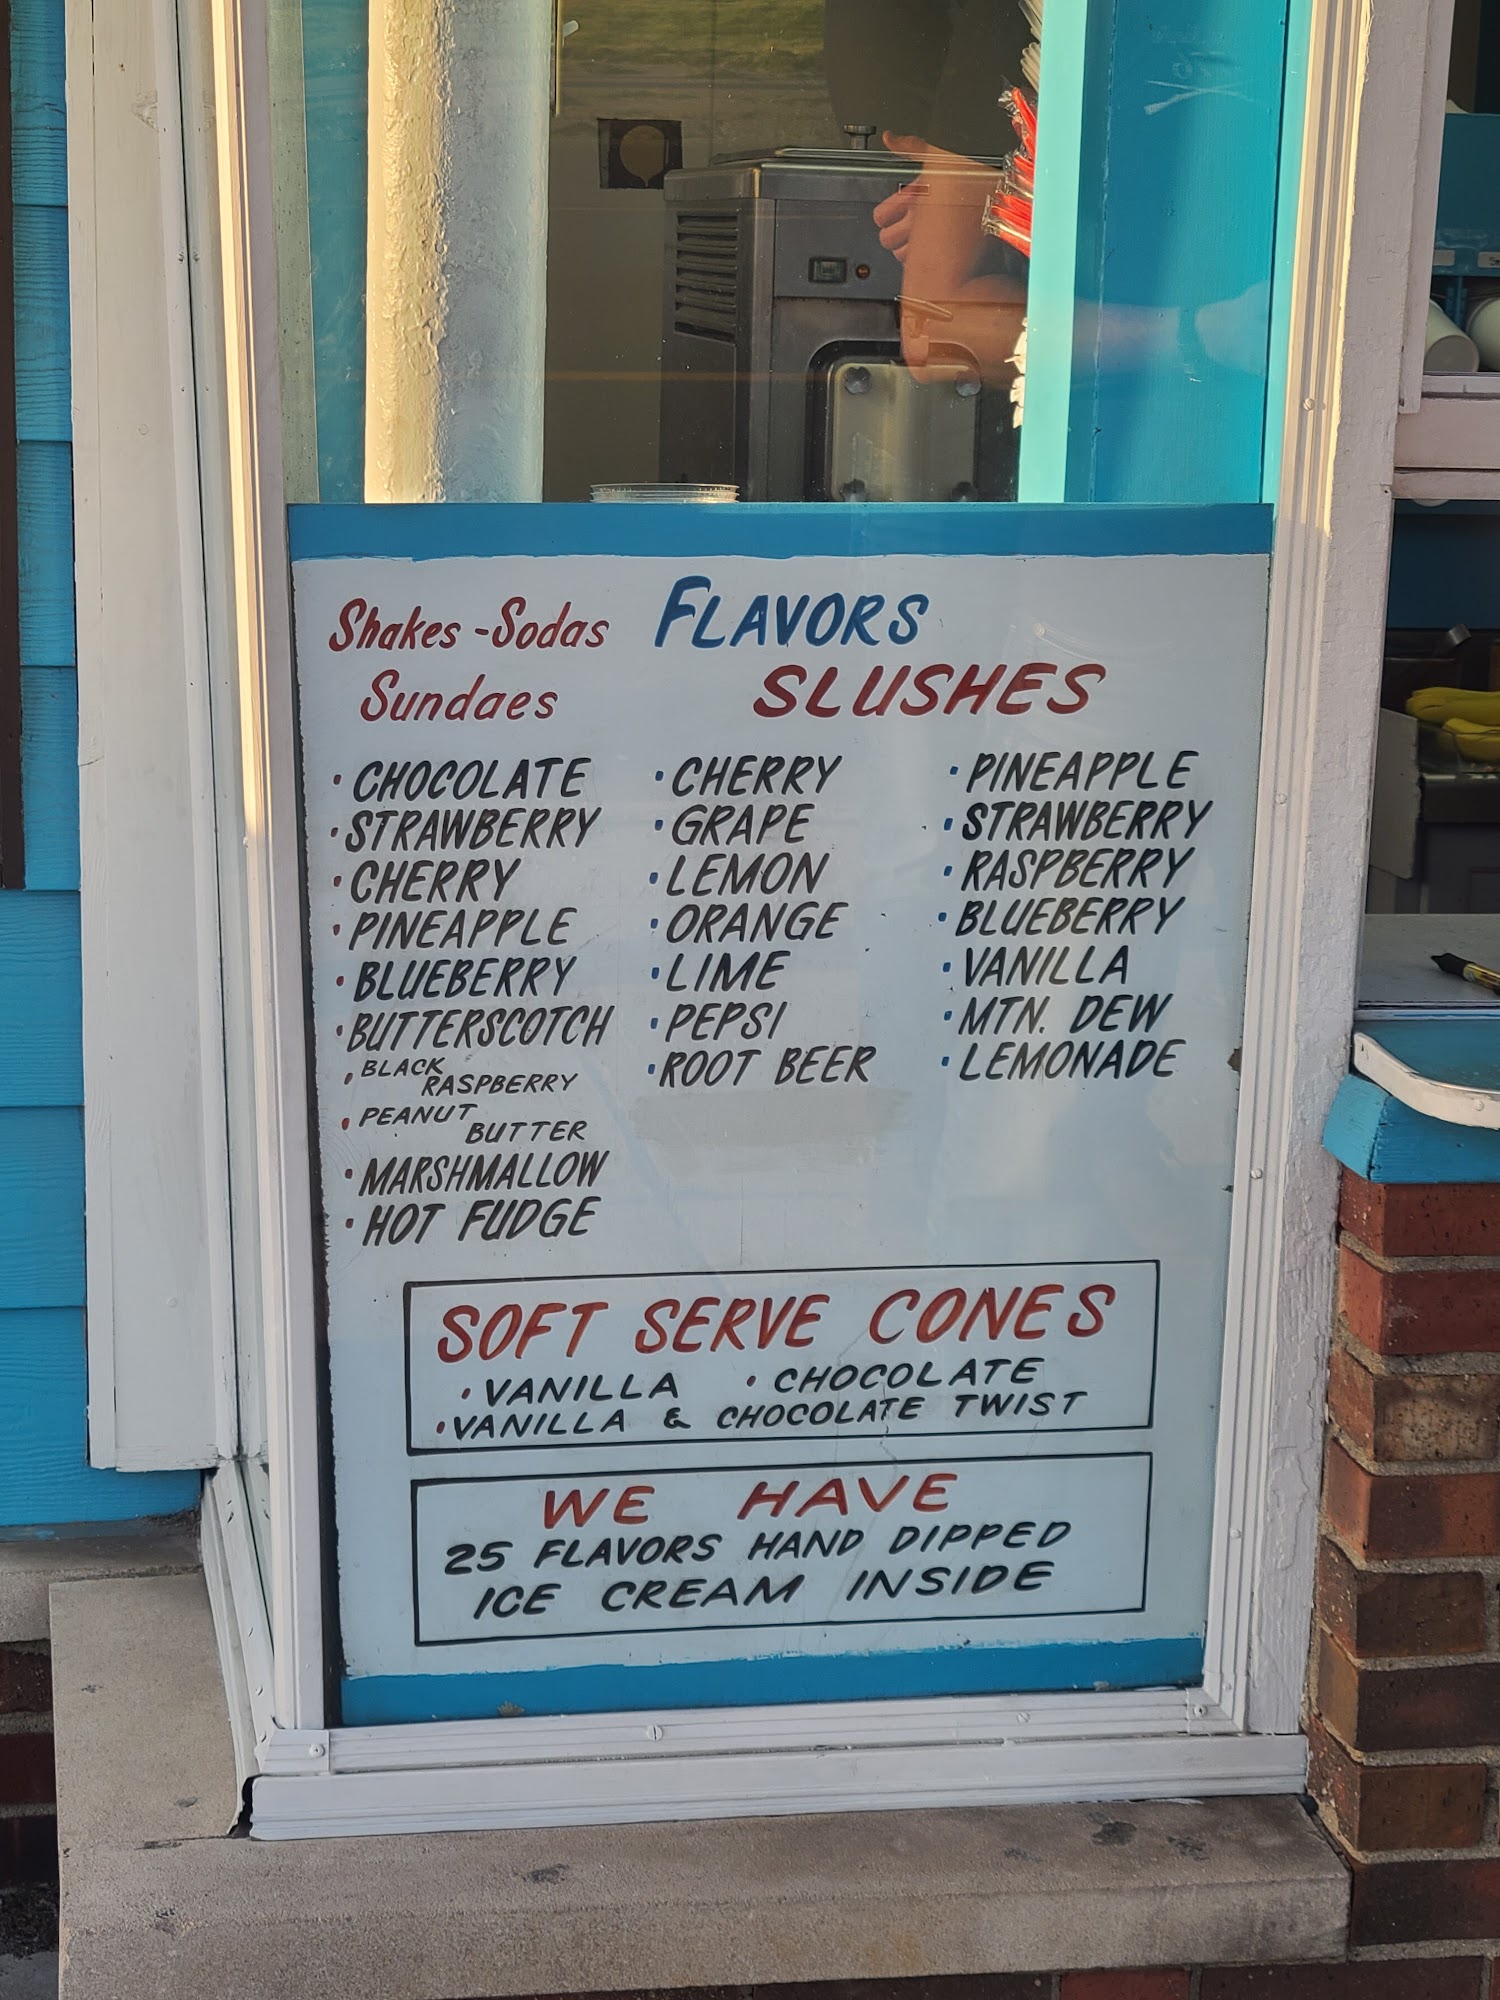 FLAVORS
Shakes - Sodas
Sundaes
• CHOCOLATE
• STRAWBERRY
• CHERRY
• PINEAPPLE
• BLUEBERRY
• BUTTERSCOTCH
• BLACK
RASPBERRY
• PEANUT
BUTTER
• MARSHMALLOW
• HOT FUDGE
SLUSHES
• CHERRY
• GRAPE
• LEMON
• ORANGE
• LIME
• PEPSI
• ROOT BEER
• PINEAPPLE
• STRAWBERRY
• RASPBERRY
• BLUEBERRY
• VANILLA
• MTN. DEW
• LEMONADE
SOFT SERVE CONES
• VANILLA • CHOCOLATE
• VANILLA & CHOCOLATE TWIST
WE HAVE
25 FLAVORS HAND DIPPED
ICE CREAM INSIDE